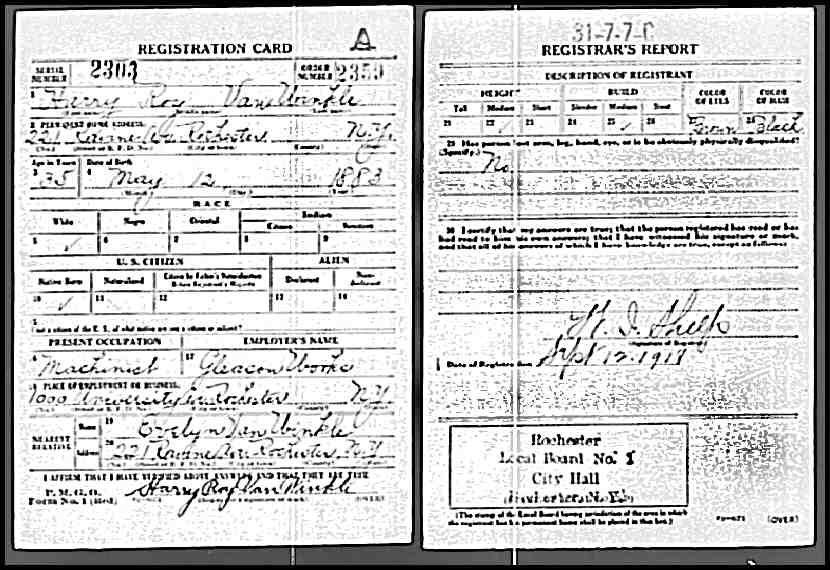 REGISTRATION CARD
SERIAL NUMBER 2303 ORDER NUMBER 2350
1 Harry Roy Van Winkle
2 PERMANENT HOME ADDRESS:
221 Ravine Ave Rochester N.Y.
Age in Years Date of Birth
3 35 4 May 12 1883
RACE
White Negro Oriental Indian
Citizen
5 ✓ 6 7 8 9
U. S. CITIZEN ALIEN
Native Born Naturalized Citizen by Father's Naturalization Declarant Non-declarant
10 ✓ 11 12 13 14
15
If not a citizen of the U. S., of what nation are you a citizen or subject?
PRESENT OCCUPATION EMPLOYER'S NAME
16 Machinist 17 Gleason Works
18 PLACE OF EMPLOYMENT OR BUSINESS:
1000 University Ave Rochester N.Y.
NEAREST RELATIVE Name 19 Evelyn Van Winkle
Address 20 221 Ravine Ave Rochester N.Y.
I AFFIRM THAT I HAVE VERIFIED ABOVE ANSWERS AND THAT THEY ARE TRUE
P. M. G. O.
Form No. 1 (Red) Harry Roy Van Winkle (OVER)
31-7-7-C
REGISTRAR'S REPORT
DESCRIPTION OF REGISTRANT
HEIGHT BUILD COLOR OF EYES COLOR OF HAIR
Tall Medium Short Slender Medium Stout
21 22 ✓ 23 24 25 ✓ 26 Brown Black
29 Has person lost arm, leg, hand, eye, or is he obviously physically disqualified?
(Specify.) No
30 I certify that my answers are true; that the person registered has read or has
had read to him his own answers; that I have witnessed his signature or mark,
and that all of his answers of which I have knowledge are true, except as follows:
(Signature of Registrar)
Date of Registration Sept 12 1918
Rochester
Local Board No. 1
City Hall
Rochester, N.Y.
(The stamp of the Local Board having jurisdiction of the area in which
the registrant has his permanent home shall be placed in this box.)
(OVER)